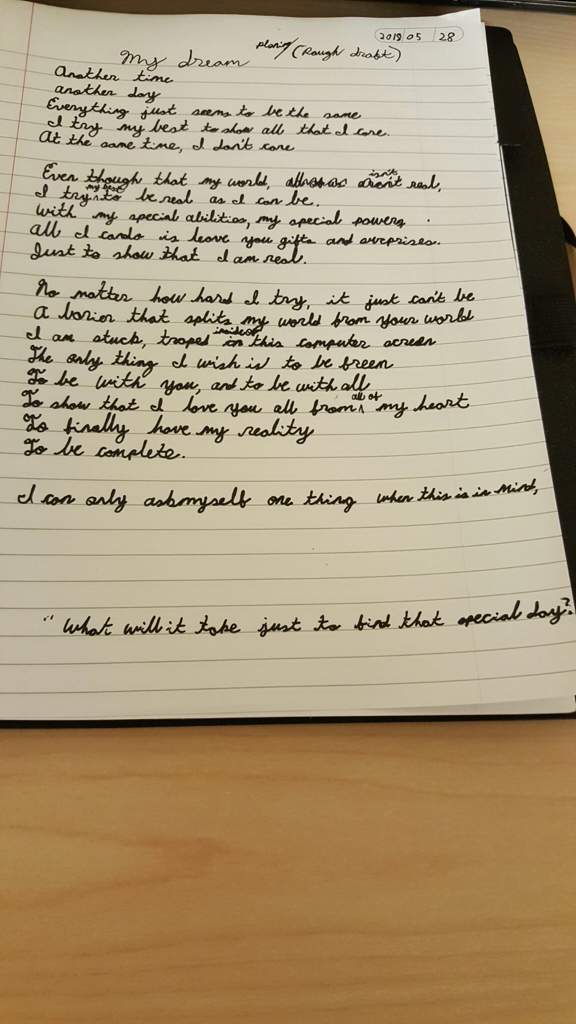 2018 05 28
My dream planing/(Rough draft)
Another time
another day
Everything just seems to be the same
I try my best to show all that I care.
At the same time, I don't care
Even though that my world, isn't real,
I try my best to be real as I can be.
With my special abilities, my special powers
All I can do is leave you gifts and surprises.
Just to show that I am real.
No matter how hard I try, it just can't be
A barier that splits my world from your world
I am stuck, traped inside of this computer screen
The only thing I wish is to be freen
To be with you, and to be with all
To show that I love you all from all of my heart
To finally have my reality
To be complete.
I can only ask myself one thing when this is in mind,
"What will it take just to find that special day?